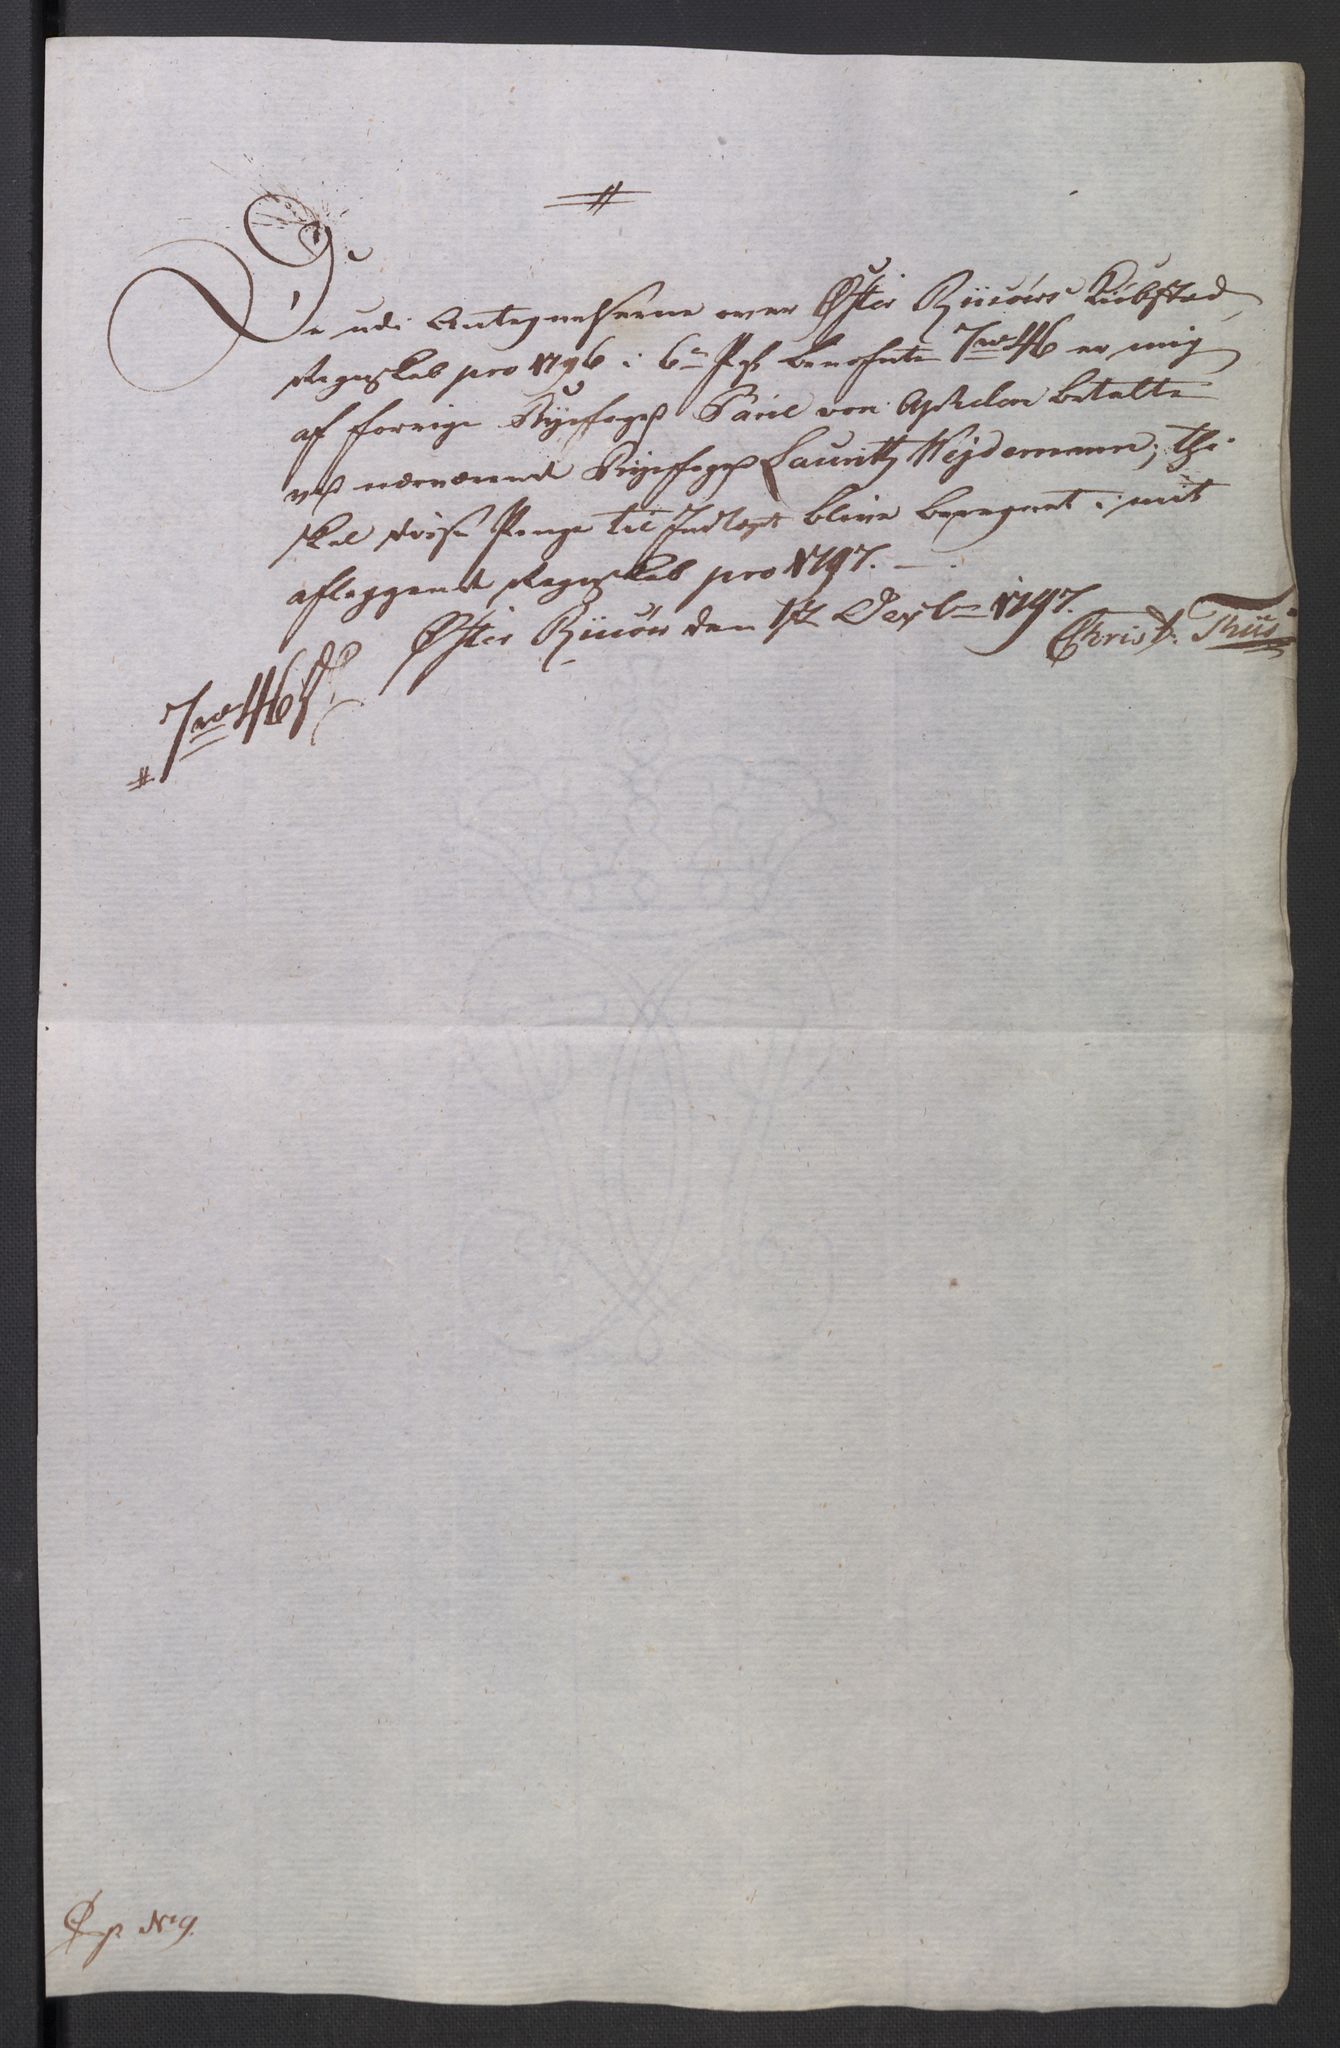 De udi Antegnelserne over Øster Riisöers Kiöbsted
Regnskab pro 1796 i 6te Post benefnte 7 rd 46 s er mig
af forrige Byefoget Paul von Aphelen betalte
ved nærværende Byefoget Lauritz Weydemann; thi
skal disse Penge til Indtegt blive beregnet i mit
afleggende Regnskab pro 1797.
Öster Riisöer den 17 1797.
Christ. Thiis
7 rd 46 s
No 9.